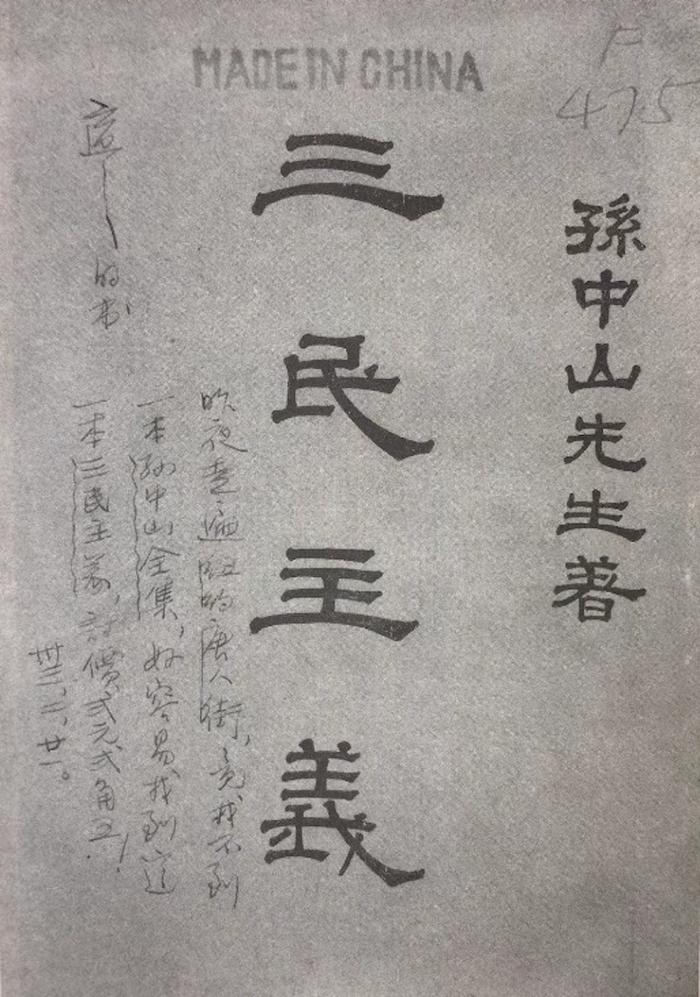 MADE IN CHINA
F
475
孫中山先生著
三民主義
的书
昨夜走遍纽约唐人街,竟找不到
一本孙中山全集,好容易找到这
一本三民主義,討價弍元弍角五!
卅三、二、廿一。